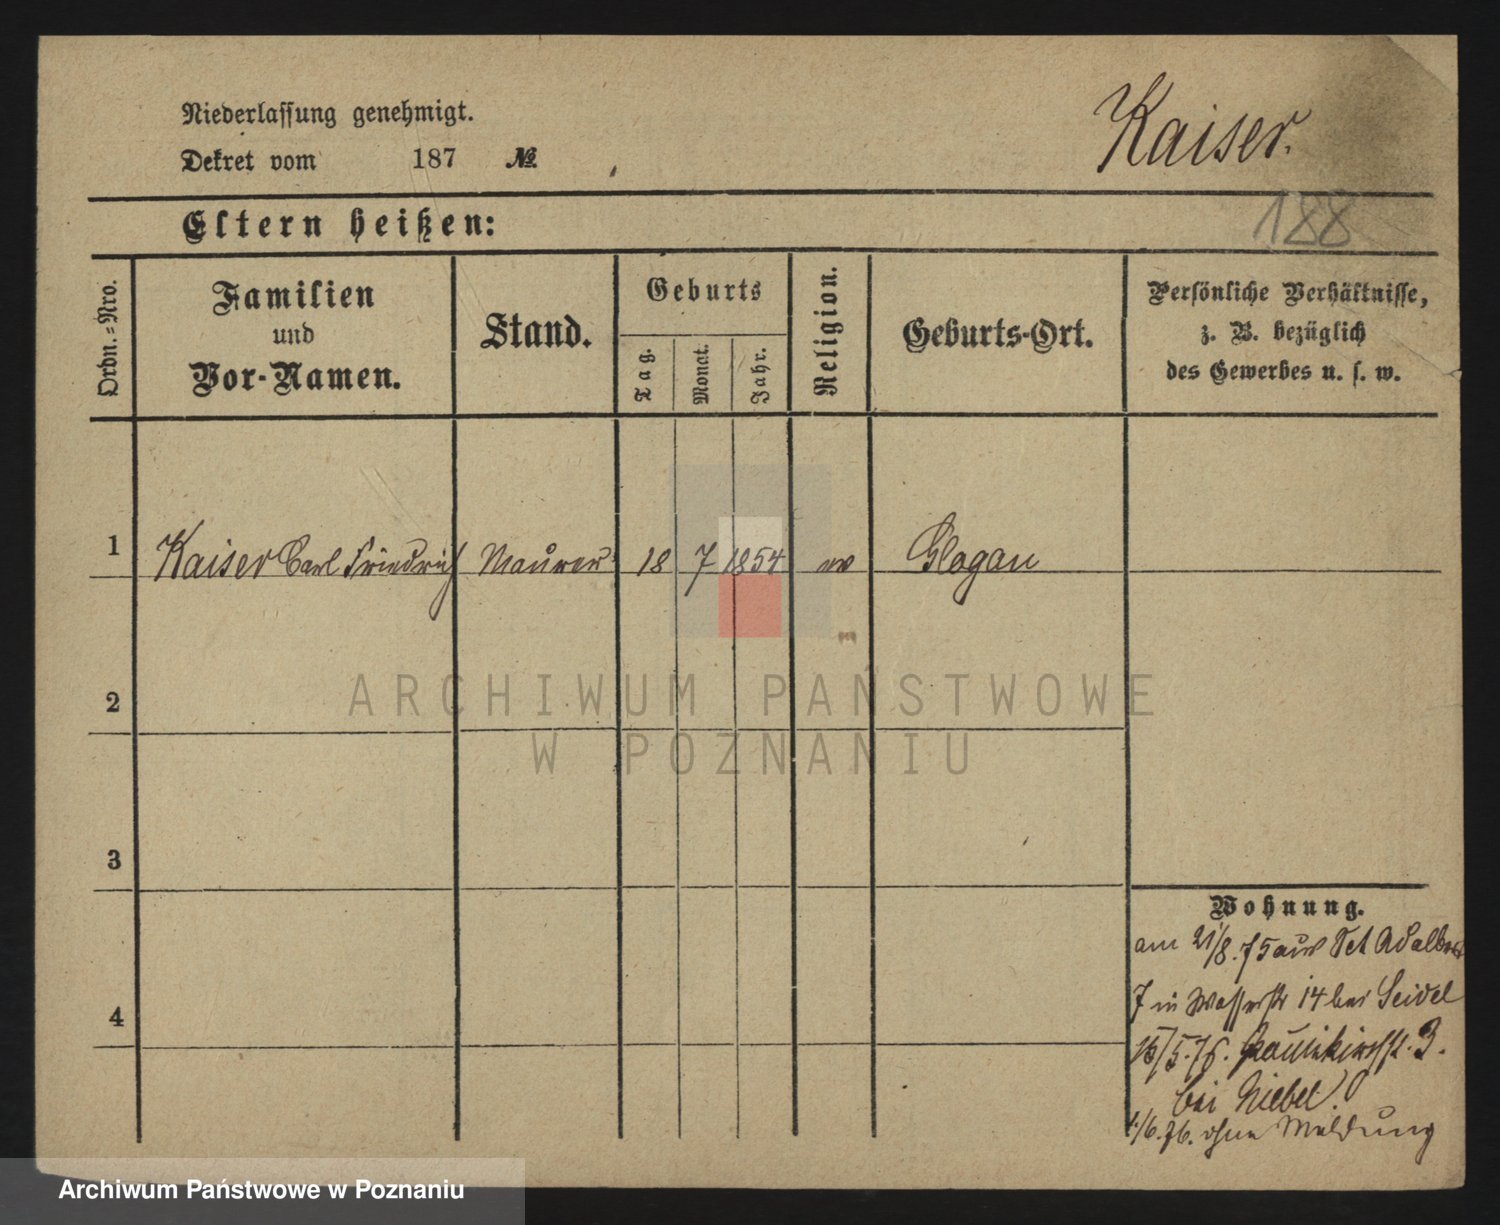 Niederlassung genehmigt.
Dekret vom 187 №
Kaiser.
188
Eltern heißen:
Ordn.-Nro.
Familien
und
Vor-Namen.
Stand.
Geburts
Tag.
Monat.
Jahr.
Religion.
Geburts-Ort.
Persönliche Verhältnisse,
z. B. bezüglich
des Gewerbes u. s. w.
1 Kaiser Carl Friedrich Maurer 18 7 1854 Glogau
2
ARCHIWUM PAŃSTWOWE
W POZNANIU
3
4
Wohnung.
am 21/8. 75 aus Sct Adalbert
7 in Wasserstr 14 bei Seidel
/5. 76. 3.
bei Niebel.
1/6. 76. ohne Meldung
Archiwum Państwowe w Poznaniu